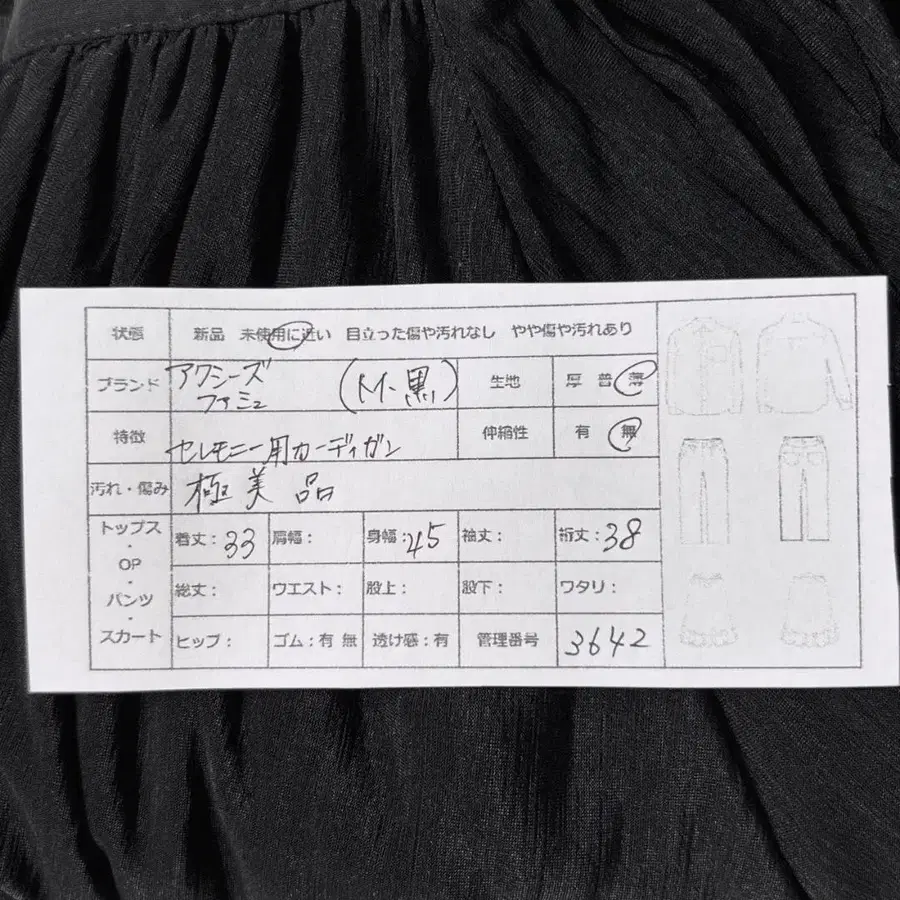 状態 新品 未使用に近い 目立った傷や汚れなし やや傷や汚れあり
ブランド アクシーズ ファム (M・黒) 生地 厚 普 薄
特徴 セレモニー用カーディガン 伸縮性 有 無
汚れ・傷み 極美品
トップス・OP・パンツ・スカート
着丈:33 肩幅: 身幅:45 袖丈: 裄丈:38
総丈: ウエスト: 股上: 股下: ワタリ:
ヒップ: ゴム:有 無 透け感:有 管理番号 3642